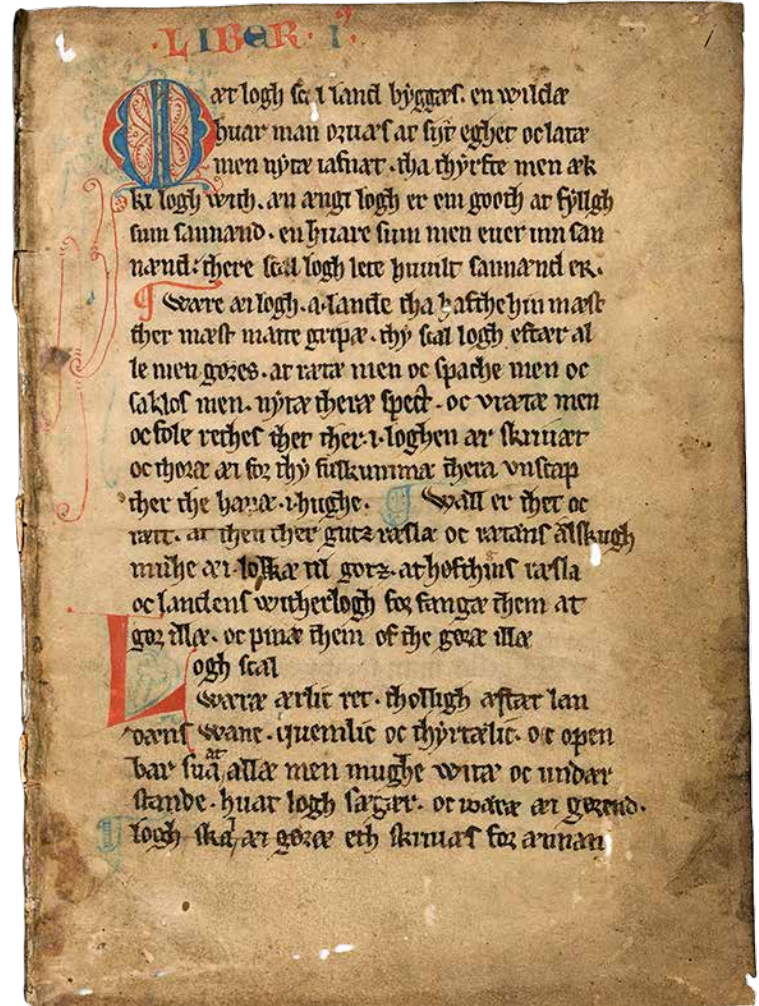 LIBER · I
Mæt logh scal land byggæs. en wildæ
huar man oruæs at sijt eghet oc latæ
men nytæ iafnæt · tha thyrfte men æk
ki logh with. æn ængi logh er em gooth at fyllgh
sum sannænd · en huare sum men euer um san
nænd: there scal logh lete huuilt sannænd er.
ware æi logh · a · lande tha hafthe hin mæst
ther mæst matte gripæ · thy scal logh eftær al
le men gøres · at rætæ men oc spache men oc
sakløs men · nytæ theræ spect · oc vrætæ men
oc fole rethes thet ther · i · loghen ær skriuæt
oc thoræ æi for thy fulkummæ thera vnscap
ther the hauæ · i hughe · wæll er thet oc
rætt · at then ther gutz ræslæ oc rætæns ælskugh
mughe æi · loskæ til gotz · at hofthins ræsla
oc landens witherlogh for fangæ them at
gør illæ · oc pinæ them of the gøræ illæ
Logh scal
wæræ ærlic ret · tholligh æftær lan
dæns wane · quemlic oc thyrtælic · oc open
bar sua at allæ men mughe witæ oc undær
stande · huat logh sægær · oc wæræ æi gørend ·
logh skal æi gøræ eth skriuæs for annan
1